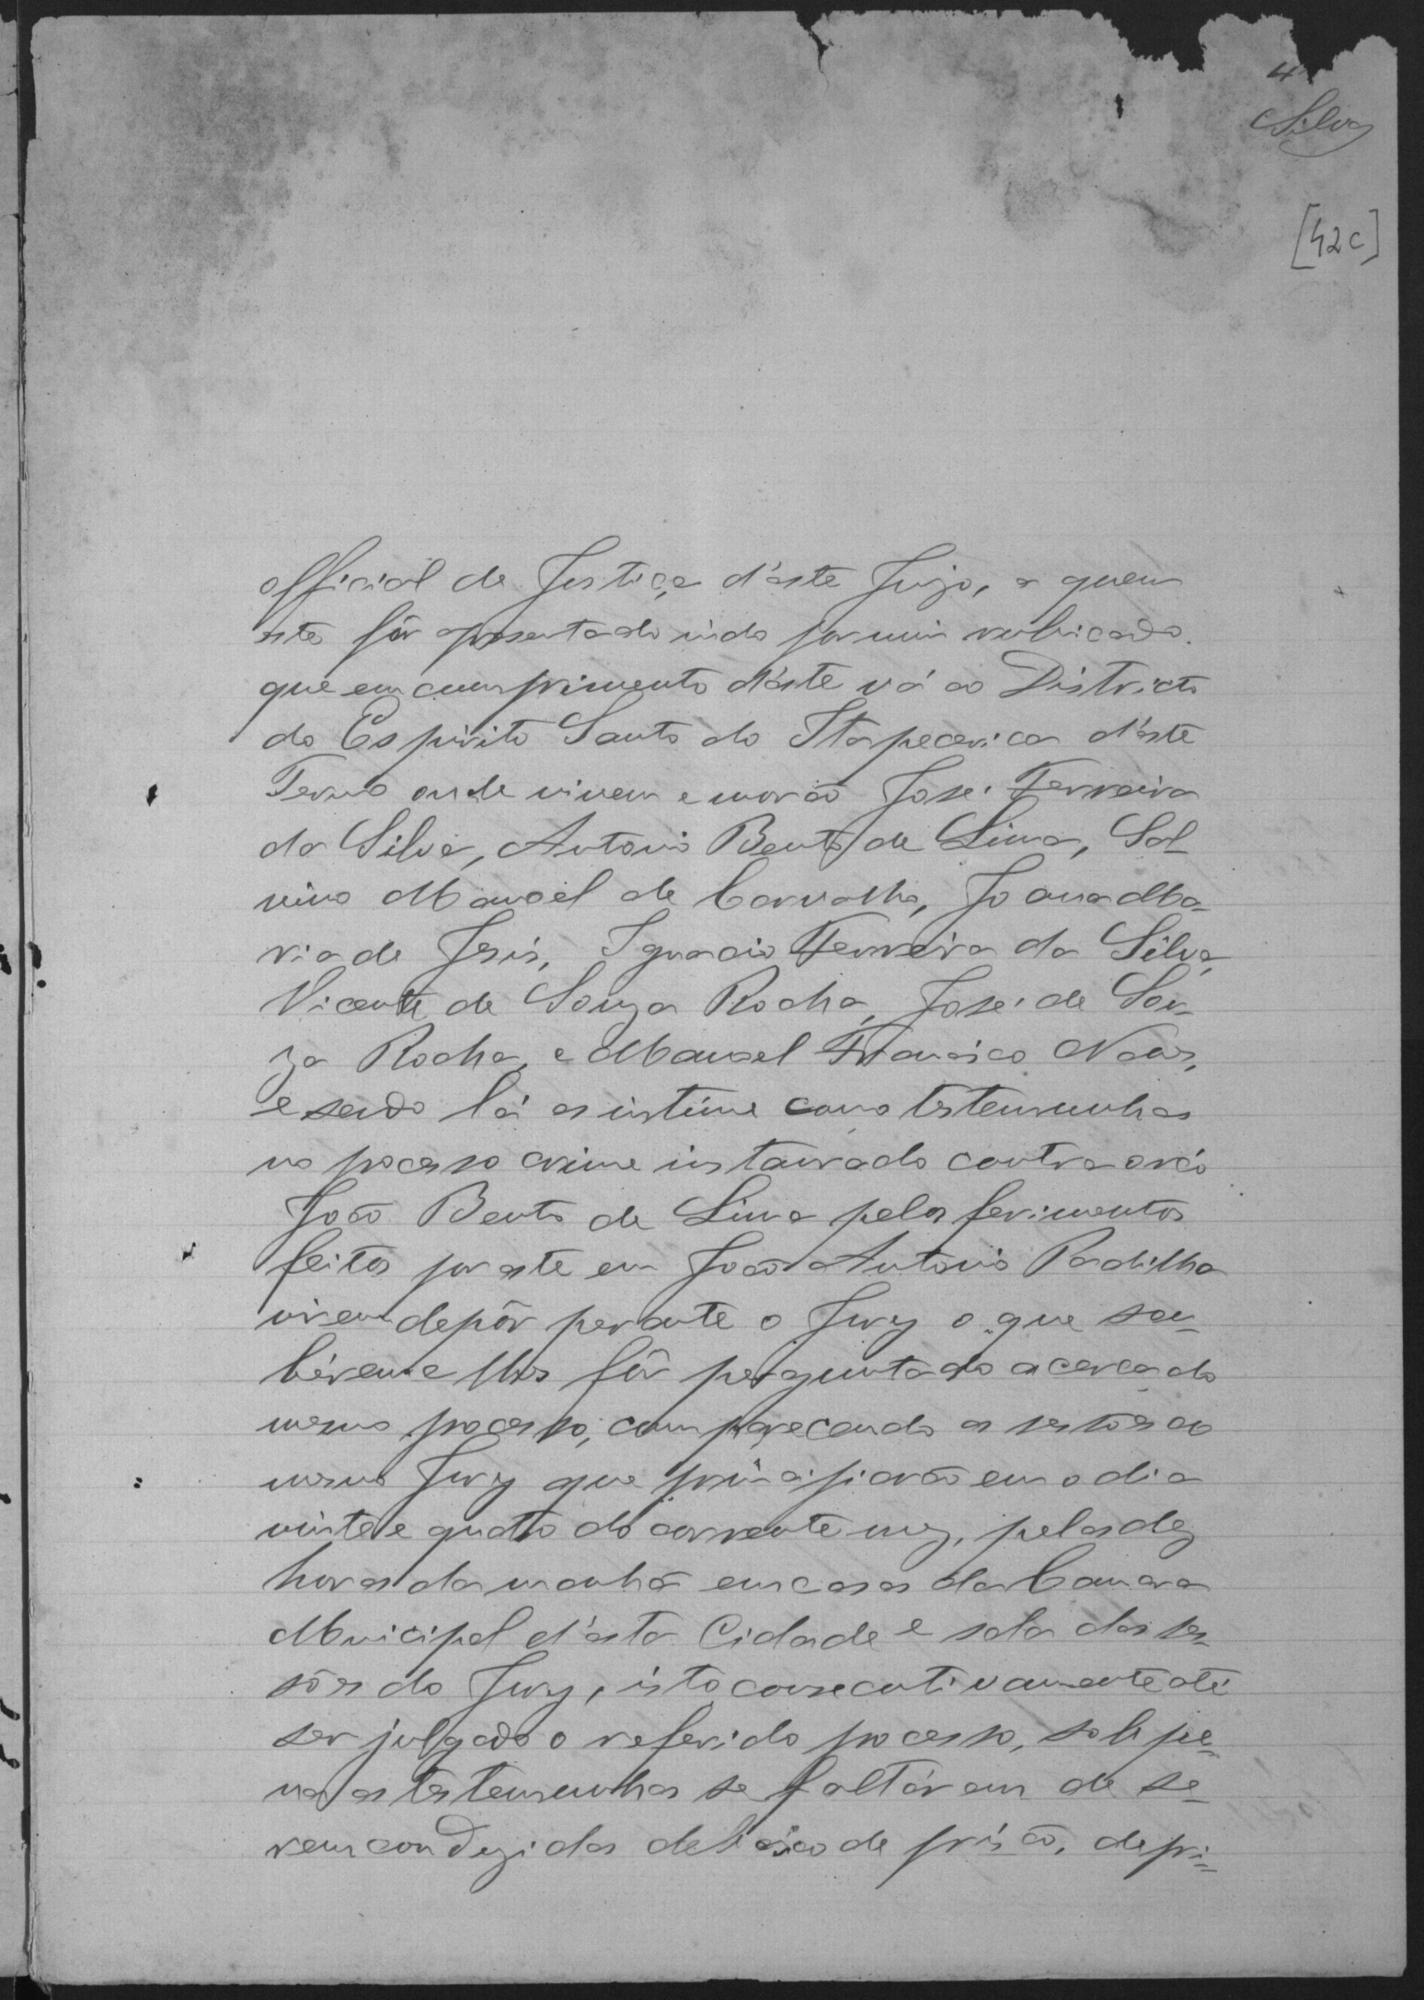 4
Silva
[42c]
official de Justiça d'este Juizo, a quem
este fôr apresentado indo por mim rubricado.
que em cumprimento d'este vá ao Districto
do Espirito Santo do Itapecerica d'este
Termo onde vivem e morão José Ferreira
da Silva, Antonio Bento de Lima, Sal-
vino Manoel de Carvalho, Joanna Ma-
ria de Jesús, Ignacio Ferreira da Silva,
Vicente de Souza Rocha, José de Sou-
za Rocha, e Manoel Francisco Naves,
e sendo lá as intime como testemunhas
no pocesso crime instaurado contra o réo
João Bento de Lima pelos ferimentos
feitos por este em João Antonio Padilha
virem depôr perante o Jury o que sou-
bérem e lhes fôr perguntado acerca do
mesmo pocesso, comparecendo as sesões do
mesmo Jury que principiarão em o dia
vinte e quatro do corrente mez, pelas dez
horas da manhã em casas da Camara
Municipal d'esta Cidade e sala das ses-
sões do Jury, isto consecutivamente até
ser julgado o referido pocesso, sob pe-
na as testemunhas se faltárem de se-
rem conduzidas debaixo de prisão, de pri-